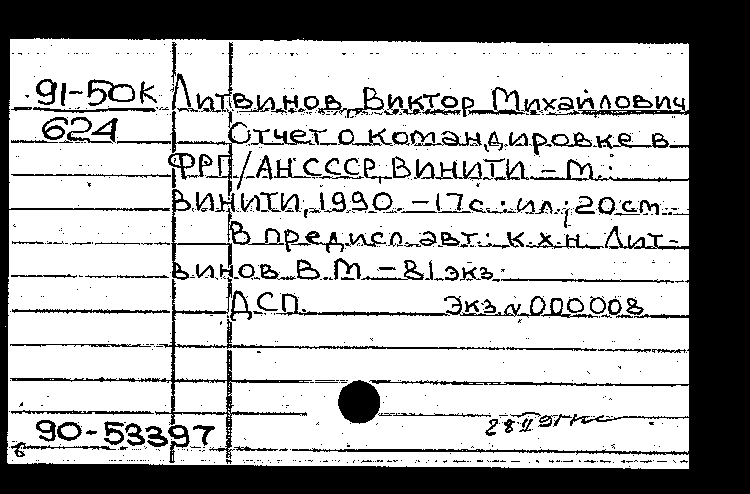 91-50К Литвинов, Виктор Михайлович
624 Отчет о командировке в
ФРГ/АН СССР, ВИНИТИ. - М.:
ВИНИТИ, 1990. - 17с.: ил.; 20см.
В предисл. авт.: к.х.н. Лит-
винов В.М. - 81 экз.
ДСП. Экз.N 000008
28 II 91
90-53397